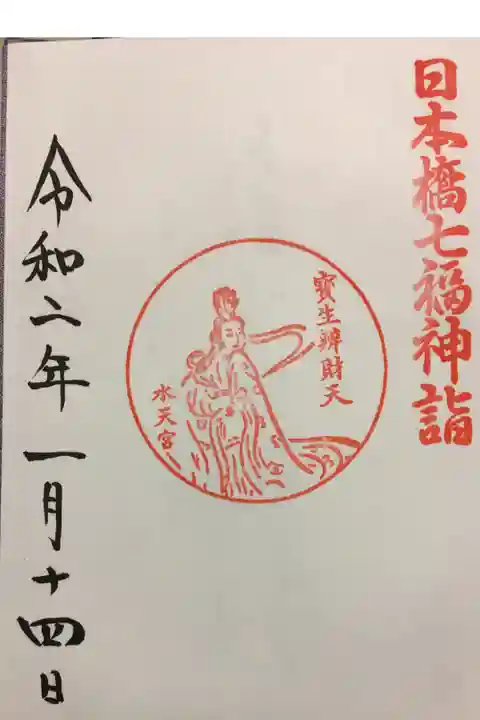 日本橋七福神詣
寳生辨財天
水天宮
令和二年一月十四日